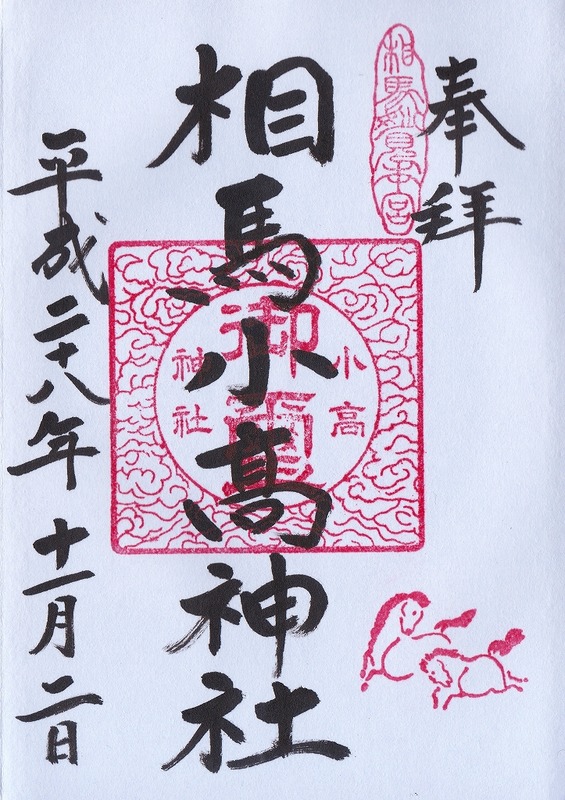 奉拝
相馬妙見本宮
相馬小髙神社
小高
御璽
神社
平成二十八年十一月二日